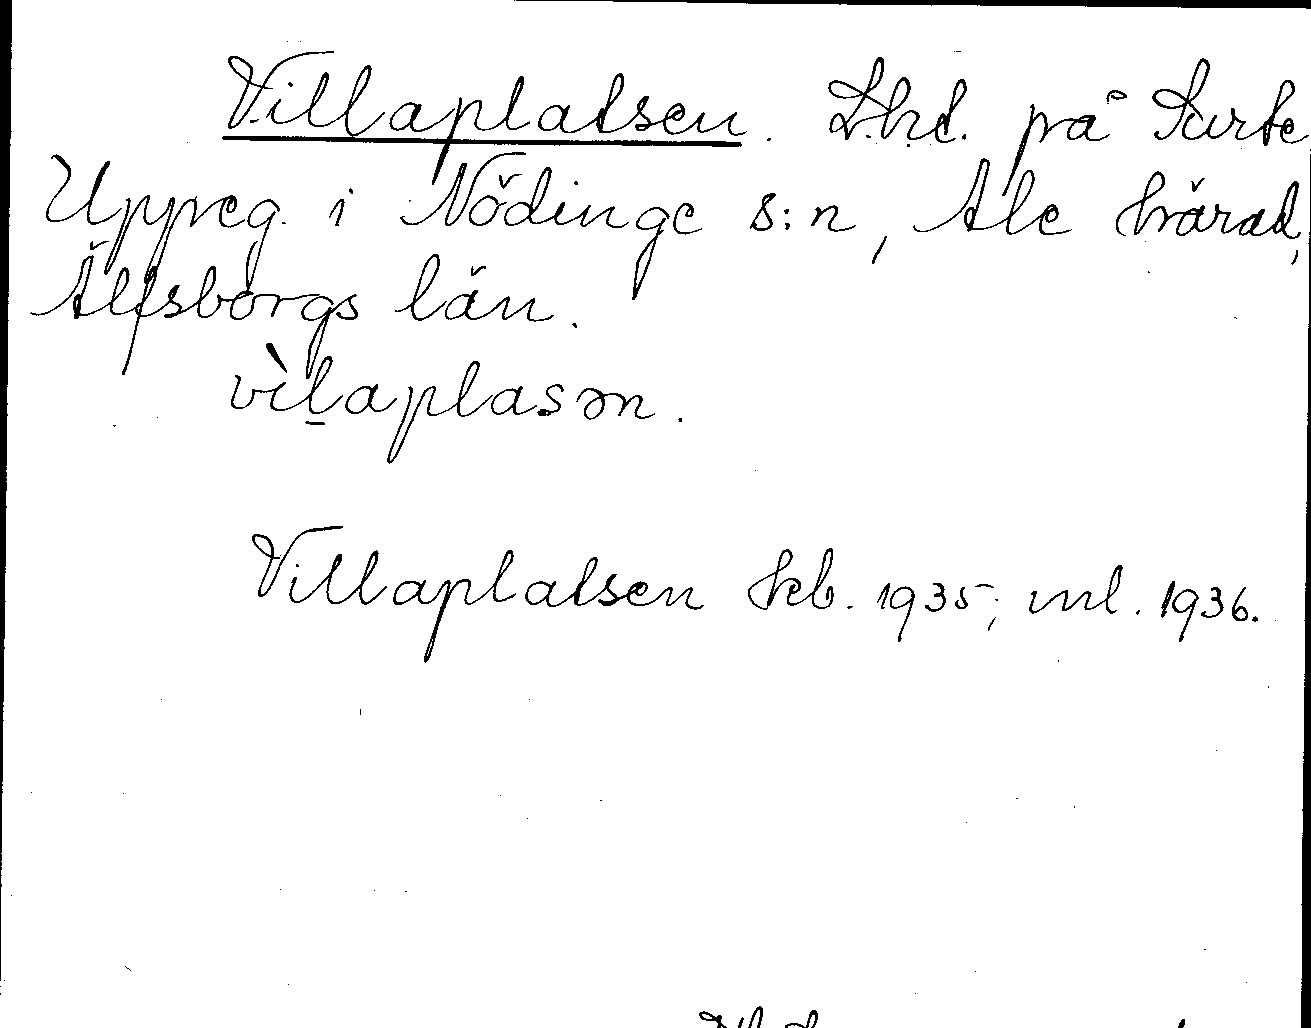 Villaplatsen. L.hd. på Surte
Uppreg. i Nödinge s:n, Ale härad,
Älfsborgs län.
vìl̠aplasən.
Villaplatsen fkb. 1935; ml. 1936.